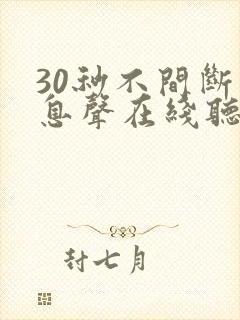 30秒不間斷
息聲在綫聽
封七月